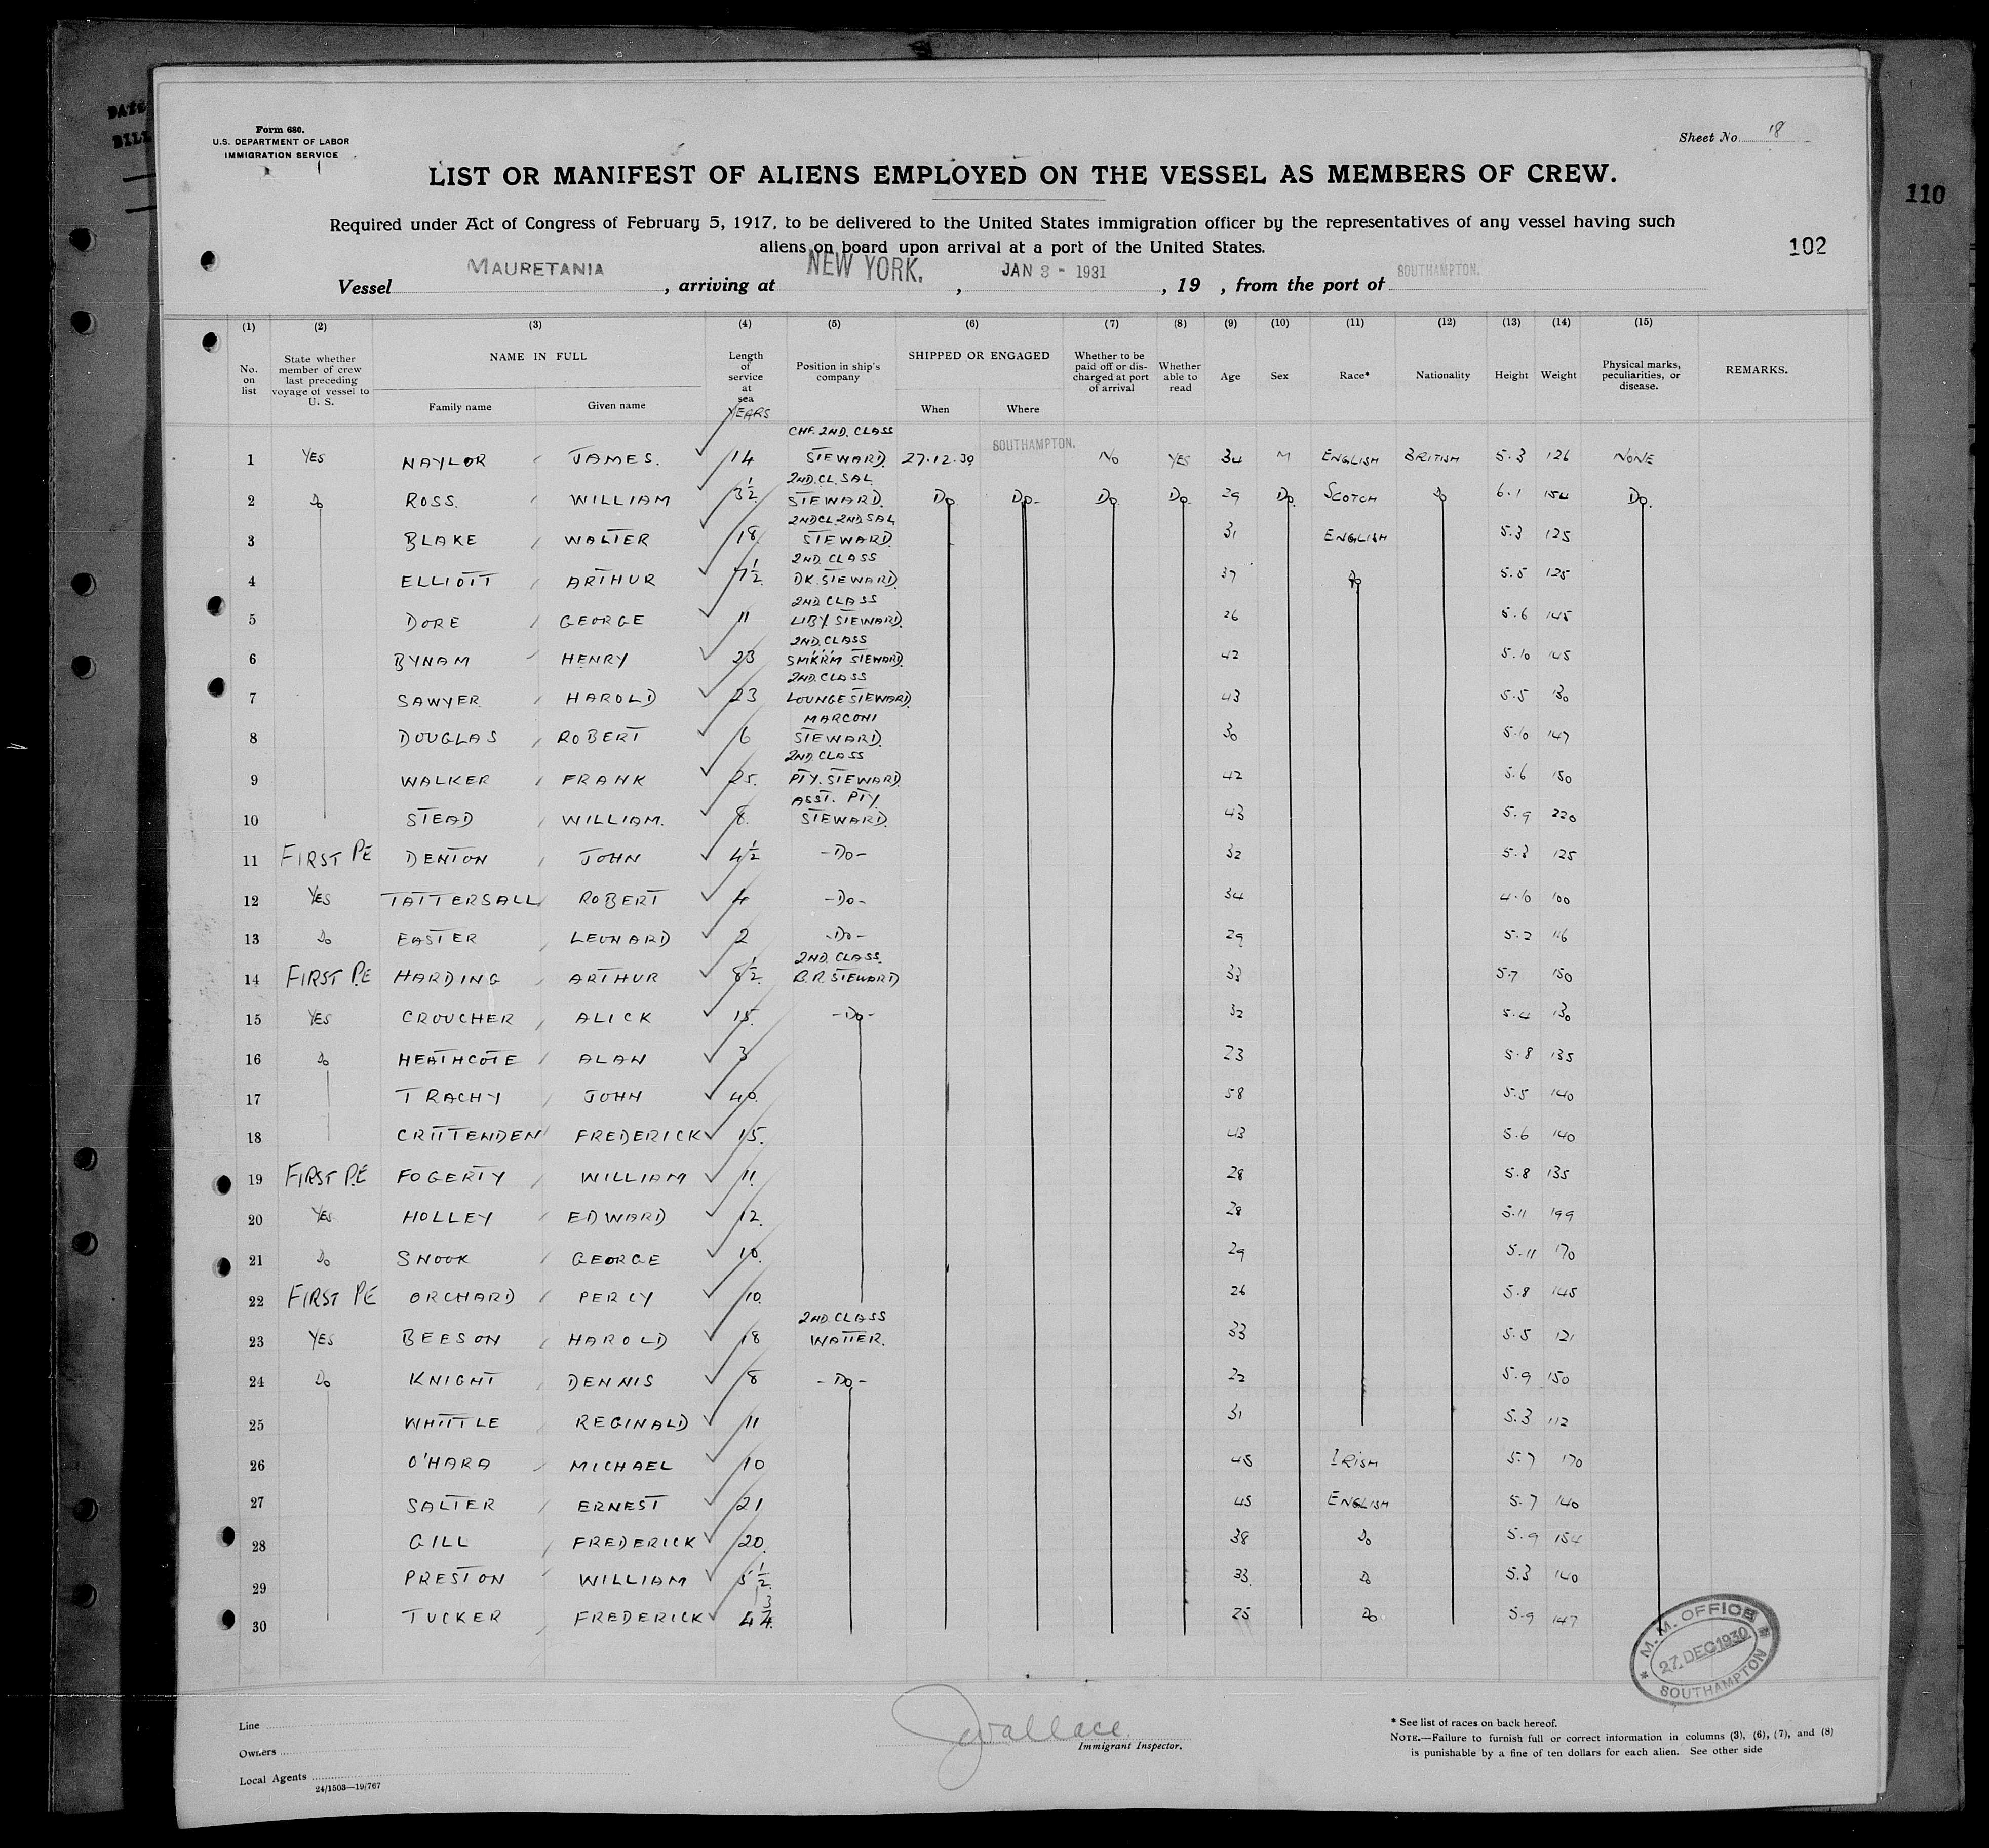 DATE
BILL
Form 680.
U.S. DEPARTMENT OF LABOR
IMMIGRATION SERVICE
Sheet No. 18
LIST OR MANIFEST OF ALIENS EMPLOYED ON THE VESSEL AS MEMBERS OF CREW.
110
Required under Act of Congress of February 5, 1917, to be delivered to the United States immigration officer by the representatives of any vessel having such
aliens on board upon arrival at a port of the United States.
102
Vessel MAURETANIA, arriving at NEW YORK, JAN 3 - 1931, 19 , from the port of SOUTHAMPTON.
(1) (2) (3) (4) (5) (6) (7) (8) (9) (10) (11) (12) (13) (14) (15)
No. on list State whether member of crew last preceding voyage of vessel to U. S. NAME IN FULL Family name Given name Length of service at sea YEARS Position in ship's company SHIPPED OR ENGAGED When Where Whether to be paid off or discharged at port of arrival Whether able to read Age Sex Race* Nationality Height Weight Physical marks, peculiarities, or disease. REMARKS.
1 YES NAYLOR JAMES. 14 CHF. 2ND. CLASS STEWARD. 27.12.30 SOUTHAMPTON. NO YES 34 M ENGLISH BRITISH 5.3 126 NONE
2 Do ROSS. WILLIAM 3½ 2ND. CL. SAL STEWARD. Do Do- Do Do 29 Do SCOTCH Do 6.1 154 Do.
3 BLAKE WALTER 18. 2ND CL 2ND SAL STEWARD. 31 ENGLISH 5.3 125
4 ELLIOTT ARTHUR 7½ 2ND. CLASS DK. STEWARD. 37 Do 5.5 125
5 DORE GEORGE 11 2ND CLASS LIBY. STEWARD. 26 5.6 145
6 BYNAM HENRY 23 2ND. CLASS SMKRM STEWARD. 42 5.10 145
7 SAWYER HAROLD 23 2ND. CLASS LOUNGE STEWARD. 43 5.5 130
8 DOUGLAS ROBERT 6 MARCONI STEWARD. 30 5.10 147
9 WALKER FRANK 25. 2ND. CLASS PTY. STEWARD. 42 5.6 150
10 STEAD WILLIAM. 8. ASST. PTY. STEWARD. 43 5.9 220
11 FIRST PE DENTON JOHN 4½ -Do- 32 5.3 125
12 YES TATTERSALL ROBERT 4 -Do- 34 4.10 100
13 Do EASTER LEONARD 2 -Do- 29 5.2 116
14 FIRST P.E HARDING ARTHUR 8½ 2ND. CLASS. B.R. STEWARD 33 5.7 150
15 YES CROUCHER ALICK 15. -Do- 32 5.4 130
16 Do HEATHCOTE ALAN 3 23 5.8 135
17 TRACHY JOHN 40. 58 5.5 140
18 CRITTENDEN FREDERICK 15. 43 5.6 140
19 FIRST P.E FOGERTY WILLIAM 11. 28 5.8 135
20 YES HOLLEY EDWARD 12. 28 5.11 199
21 Do SNOOK GEORGE 10. 29 5.11 170
22 FIRST PE ORCHARD PERCY 10. 26 5.8 145
23 YES BEESON HAROLD 18 2ND. CLASS WAITER. 33 5.5 121
24 Do KNIGHT DENNIS 8 -Do- 22 5.9 150
25 WHITTLE REGINALD 11 31 5.3 112
26 O'HARA MICHAEL 10 45 IRISH 5.7 170
27 SALTER ERNEST 21 45 ENGLISH 5.7 140
28 GILL FREDERICK 20. 38 Do 5.9 154
29 PRESTON WILLIAM 5½. 33. Do 5.3 140
30 TUCKER FREDERICK 4¾. 25 Do 5.9 147
M. M. OFFICE
27. DEC 1930
SOUTHAMPTON
Line
Owners
Local Agents
24/1503—19/767
JWallace
Immigrant Inspector.
* See list of races on back hereof.
NOTE.—Failure to furnish full or correct information in columns (3), (6), (7), and (8)
is punishable by a fine of ten dollars for each alien. See other side